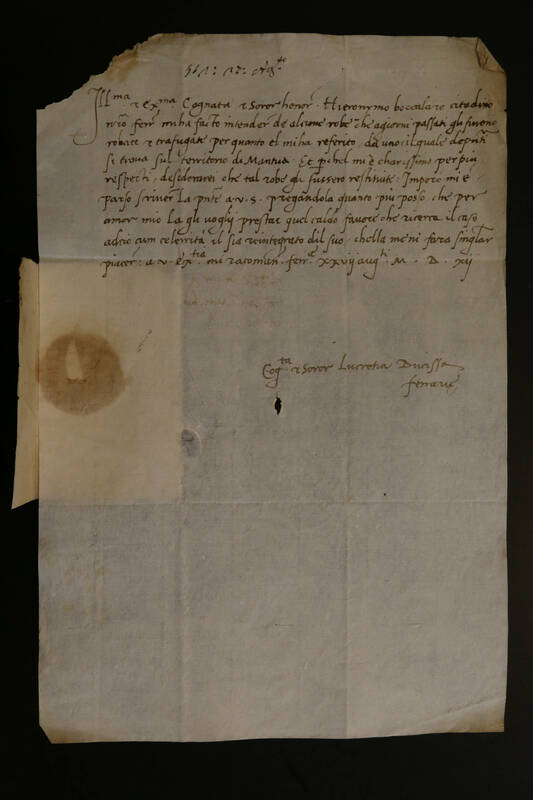 Ill.ma & ex.ma Cognata & Soror honor. Hieronymo boccalaro citadino
nr̃o ferr. mi ha facto intender de alcune robe che agiorni passati gli furono
robate & trafugate per quanto el mi ha referito, da uno il quale de pñti
si trova sul territorio di Mantua. Et perchel mi è charissimo per più
respecti, desiderarei che tal robe gli fussero restituite: Impero mi è
parso scriver la pñte a v. s. pregandola quanto più posso, che per
amor mio la gli voglij prestar quel caldo favore che ricerca il caso
adciò cum celerrità el sia reintegrato dil suo, chella me ni farà singular
piacer: a v. Ex.tia mi racoman. ferr.e xxvij aug.ti M. D. xij
Cog.ta & Soror Lucretia Ducissa
ferrarie